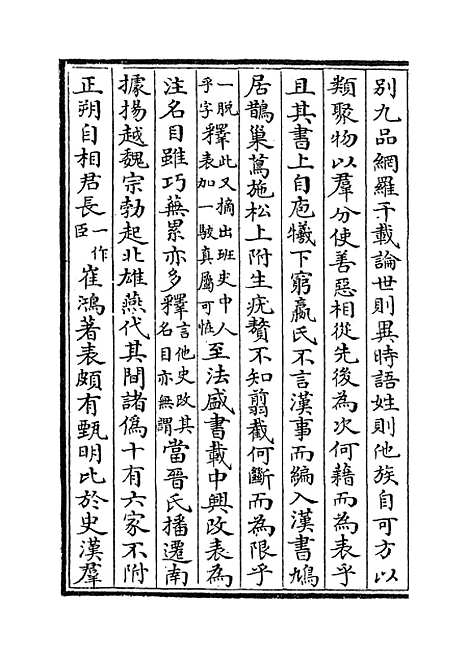 别九品網羅千載論世則異時語姓則他族自可方以
類聚物以羣分使善惡相從先後為次何藉而為表乎
且其書上自庖犧下窮嬴氏不言漢事而編入漢書鳩
居鵲巢蔦施松上附生疣贅不知翦截何斷而為限乎
一脱乎字釋此又摘出班史中人表加一駮真屬可恠至法盛書載中興改表為
注名目雖巧蕪累亦多釋言他史改其名目亦無謂當晉氏播遷南
據揚越魏宗勃起北雄燕代其間諸偽十有六家不附
正朔自相君長一作臣崔鴻著表頗有甄明比於史漢羣